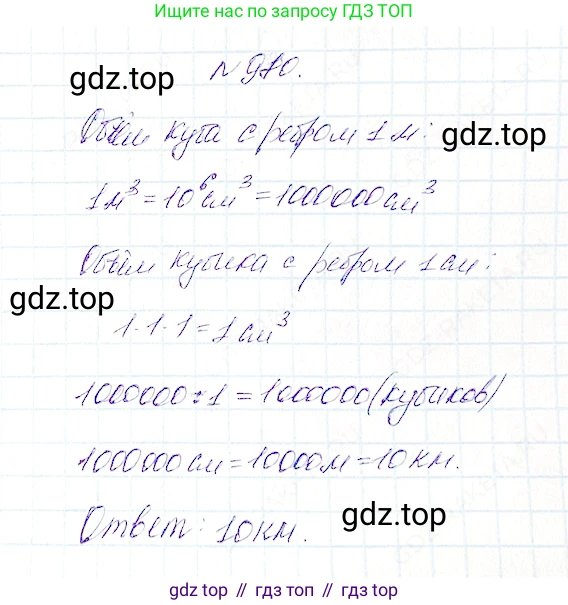 Ищите нас по запросу ГДЗ ТОП
gdz.top
№ 970.
Объём куба с ребром 1 м:
gdz.top
1м³ = 10⁶см³ = 1000000см³
Объём кубика с ребром 1см:
gdz.top
1·1·1 = 1 см³
1000000 : 1 = 1000000 (кубиков)
1000000см = 10000м = 10 км.
Ответ: 10 км.
gdz.top
gdz топ // гдз топ // гдз.top